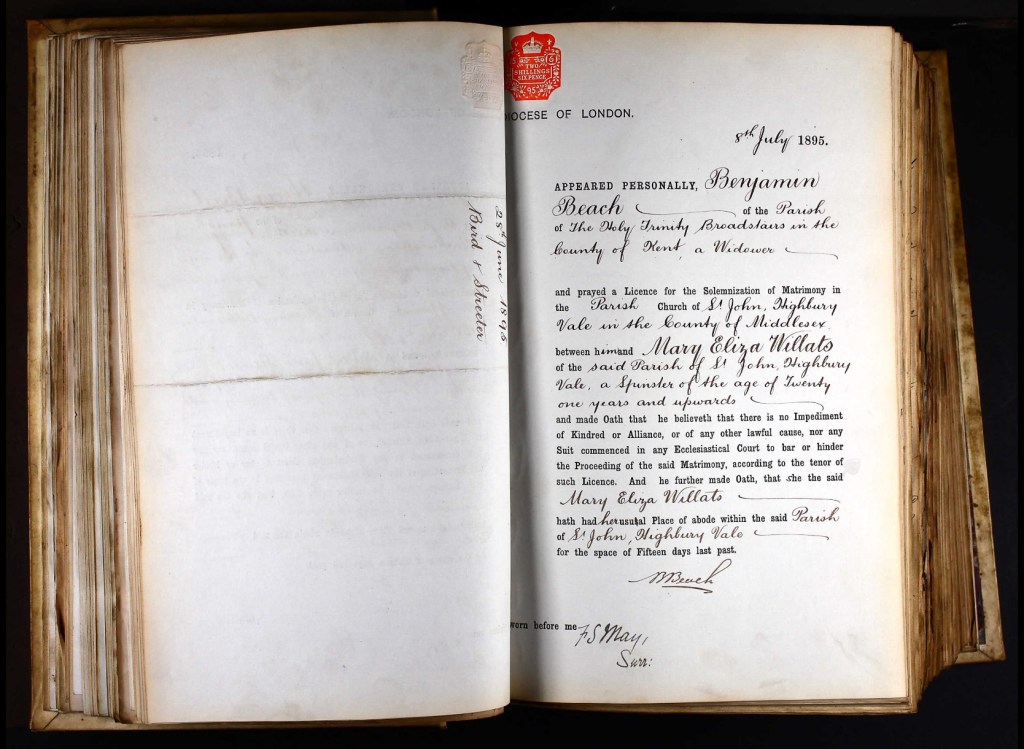 28th June 1895
Bird & Streeter
TWO
SHILLINGS
SIX PENCE
95
DIOCESE OF LONDON.
8th July 1895.
APPEARED PERSONALLY, Benjamin
Beach of the Parish
of The Holy Trinity Broadstairs in the
County of Kent, a Widower
and prayed a Licence for the Solemnization of Matrimony in
the Parish Church of St John, Highbury
Vale in the County of Middlesex
between him and Mary Eliza Willats
of the said Parish of St John, Highbury
Vale, a Spinster of the age of Twenty
one years and upwards
and made Oath that he believeth that there is no Impediment
of Kindred or Alliance, or of any other lawful cause, nor any
Suit commenced in any Ecclesiastical Court to bar or hinder
the Proceeding of the said Matrimony, according to the tenor of
such Licence. And he further made Oath, that she the said
Mary Eliza Willats
hath had her usual Place of abode within the said Parish
of St John, Highbury Vale
for the space of Fifteen days last past.
B Beach
worn before me
F S May,
Surr: